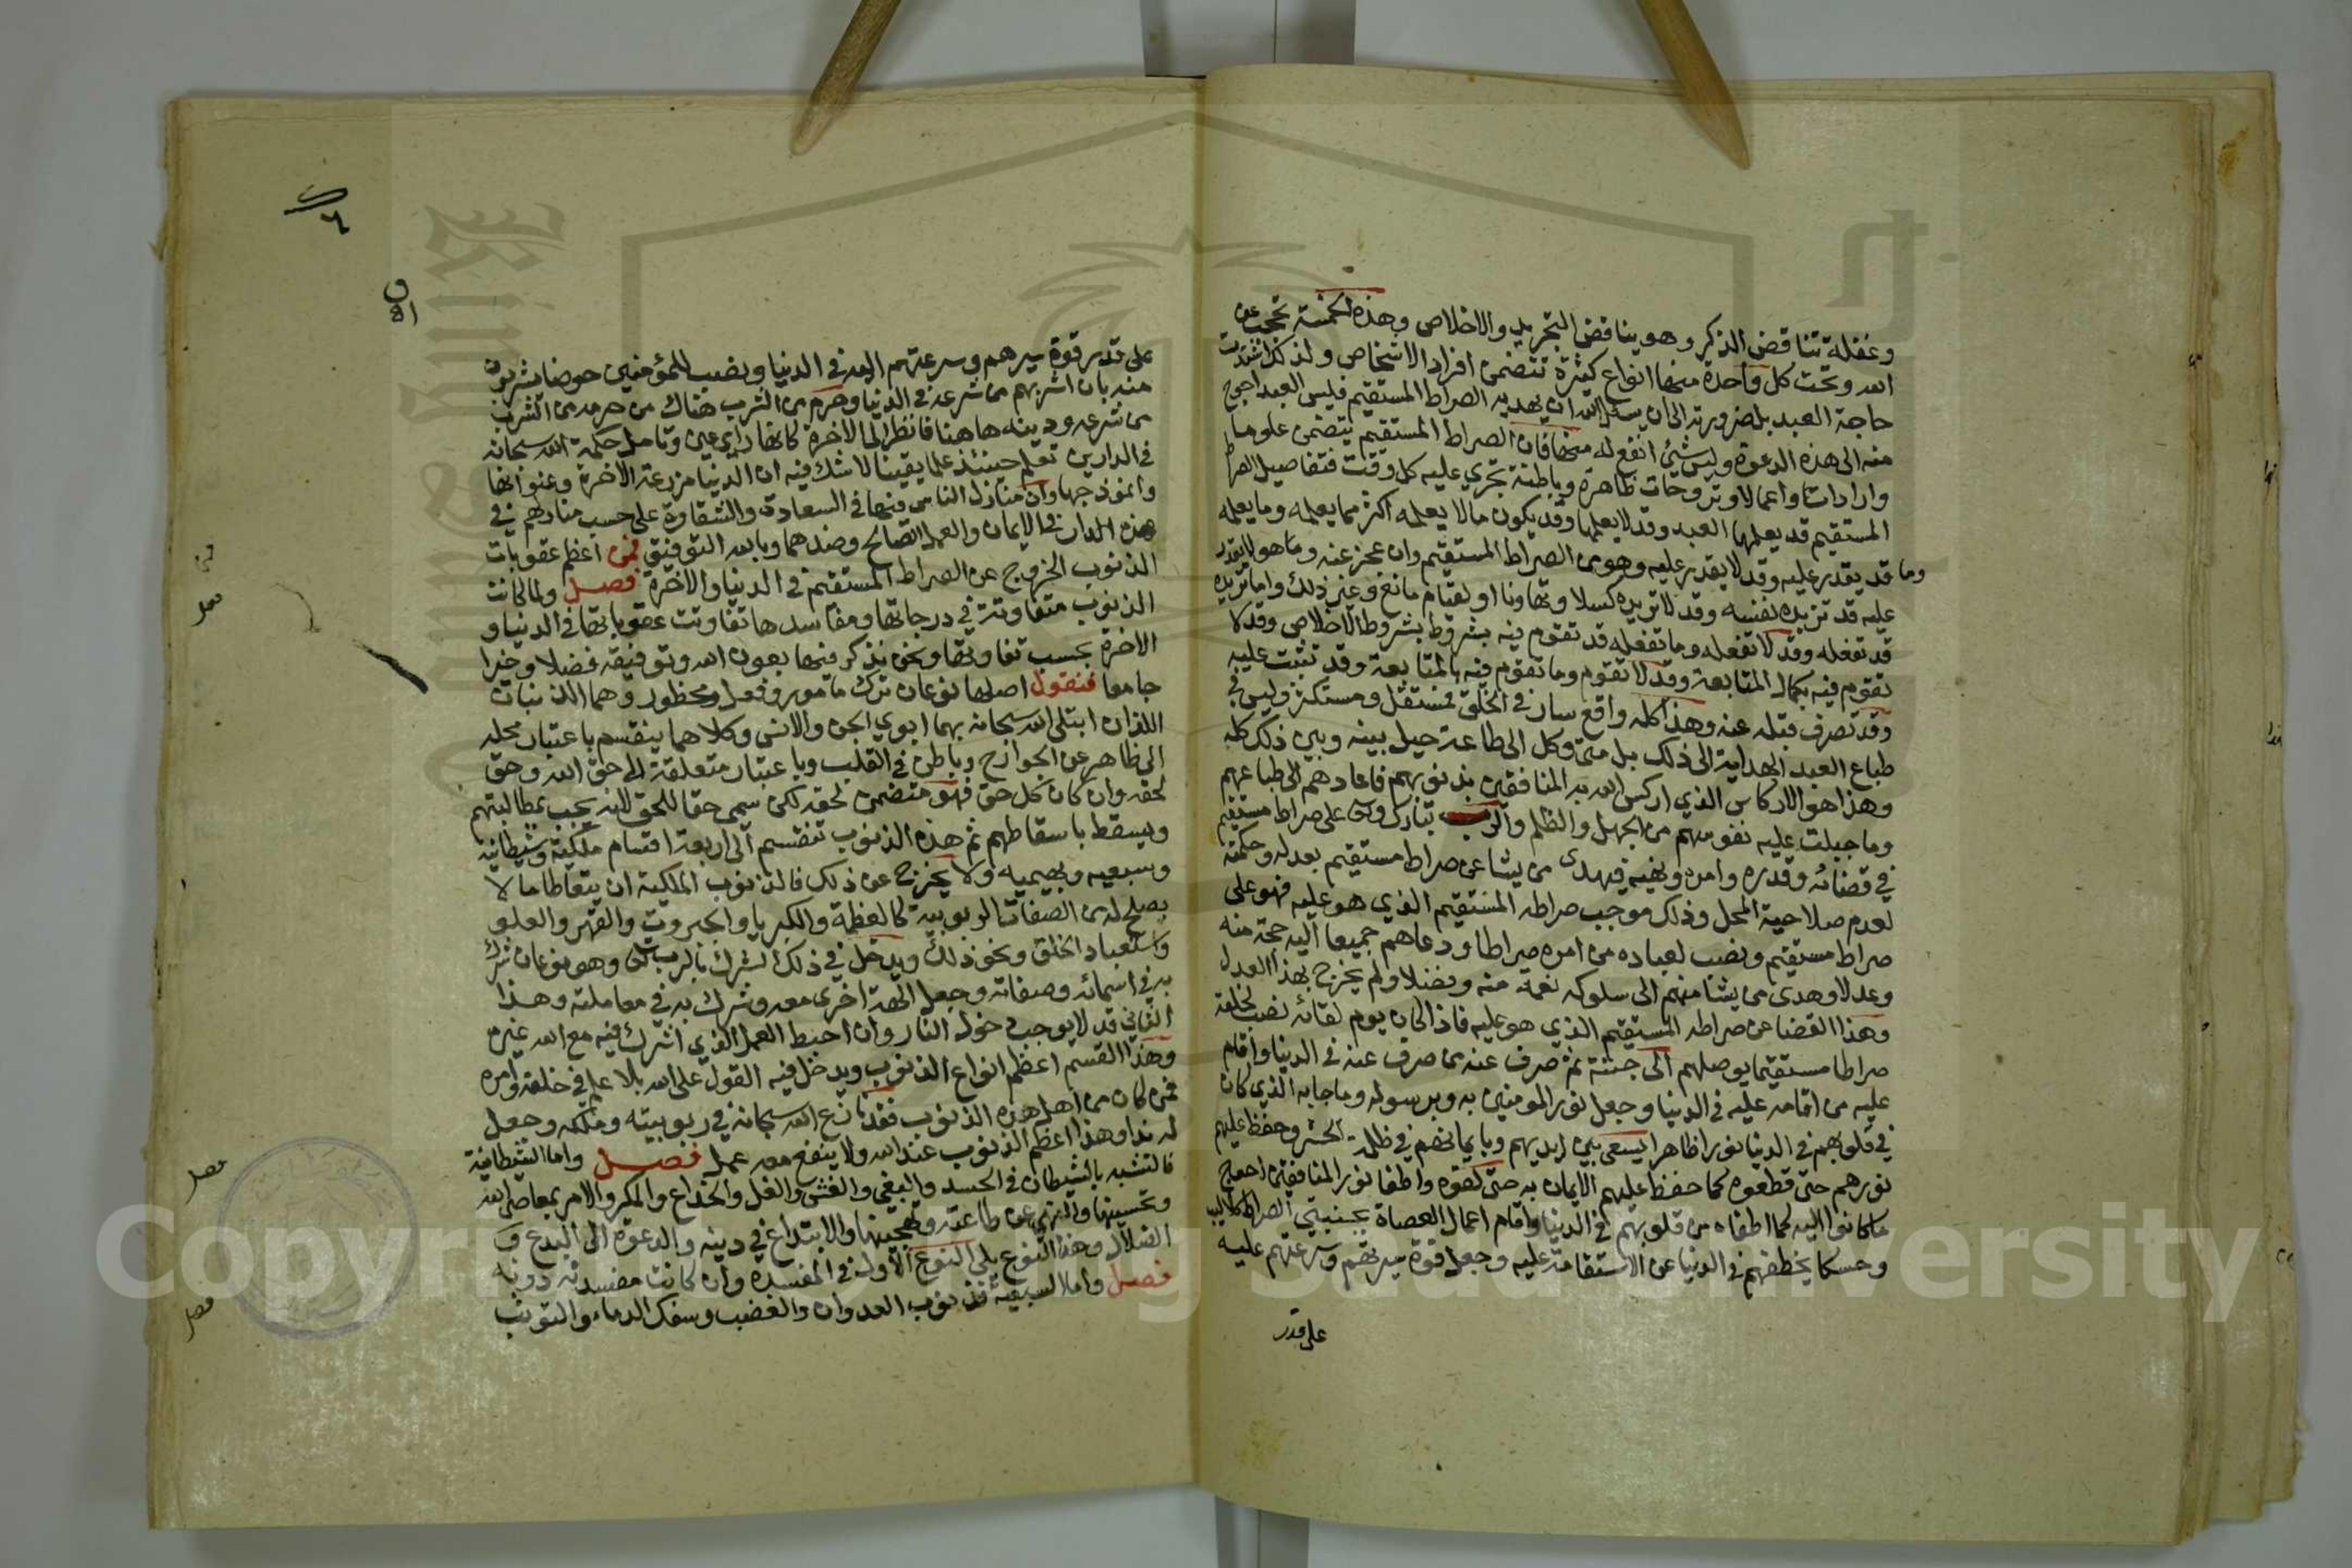 وغفلة تناقض الذكر وهو يناقض التجريد والاخلاص وهذه الخمسة تحجب عن
الله وتحت كل واحدة منها انواع كثيرة تتضمن افراد الاشخاص ولذلك اشتدت
حاجة العبد بل ضرورته الى ان يسئل الله ان يهديه الصراط المستقيم فليس العبد احوج
منه الى هذه الدعوة وليس شئ انفع له منها فان الصراط المستقيم يتضمن علوما
وارادات واعمالا وتروحات ظاهرة وباطنة تجري عليه كل وقت فتفاصيل الصراط
المستقيم قد يعلمها العبد وقد لا يعلمها وقد يكون ما لا يعلمه اكثر مما يعلمه وما يعلمه
وما قد يقدر عليه وقد لا يقدر عليه وهو من الصراط المستقيم وان عجز عنه وما هو لا يقدر
عليه قد تريده نفسه وقد لا تريده كسلا وتهاونا او لقيام مانع وغير ذلك واما تريده
قد تفعله وقد لا تفعله وما تفعله قد تقوم فيه بشروط بشروط الاخلاص وقد لا
تقوم فيه بكمال المتابعة وقد لا تقوم وما تقوم فيه بالمتابعة وقد تثبت عليه
وقد تصرف قبله عنه وهذا كله واقع سار في الخلق فمستقل ومستكثر وليس في
طباع العبد الهداية الى ذلك بل متى وكل الى طباعه حيل بينه وبين ذلك كله
وهذا هو الاركاس الذي اركس الله به المنافقين بذنوبهم فاعادهم الى طباعهم
وما جبلت عليه نفوسهم من الجهل والظلم والرب تبارك وتعالى على صراط مستقيم
في قضائه وقدره وامره ونهيه فيهدى من يشا عن صراط مستقيم بعدله وحكمته
لعدم صلاحية المحل وذلك موجب صراطه المستقيم الذي هو عليه فهو على
صراط مستقيم ونصب لعباده من امره صراطا ودعاهم جميعا اليه حجة منه
وعدلا وهدى من يشا منهم الى سلوكه نعمة منه وفضلا ولم يخرج بهذا العدل
وهذا القضا عن صراطه المستقيم الذي هو عليه فاذا كان يوم لقائه نصب لخلقه
صراطا مستقيما يوصلهم الى جنته ثم صرف عنه من صرف عنه في الدنيا واقام
عليه من اقامه عليه في الدنيا وجعل نور المومنين به وبرسوله وما جا به الذي كان
في قلوبهم في الدنيا نورا ظاهرا يسعى بين ايديهم وبايمانهم في ظلمة الحشر وحفظ عليهم
نورهم حتى قطعوه كما حفظ عليهم الايمان به حتى لقوه واطفا نور المنافقين احوج
ما كانوا اليه كما اطفاه من قلوبهم في الدنيا واقام اعمال العصاة بجنبتي الصراط كلاليب
وحسكا يخطفهم في الدنيا عن الاستقامة عليه وجعل قوة سيرهم وسرعتهم عليه
على قدر
على قدر قوة سيرهم وسرعتهم اليه في الدنيا ونصب للمؤمنين حوضا يشربون
منه بازا شربهم من شرعه في الدنيا وحرم من الشرب هناك من حرمه من الشرب
من شرعه ودينه هاهنا فانظر الى الاخرة كانها راي عين وتامل حكمة الله سبحانه
في الدارين تعلم حينئذ علما يقينا لا شك فيه ان الدنيا مزرعة الاخرة وعنوانها
وانموذجها وان منازل الناس فيها في السعادة والشقاوة على حسب منازلهم في
هذه الدار في الايمان والعمل الصالح وضدهما وبالله التوفيق فمن اعظم عقوبات
الذنوب الخروج عن الصراط المستقيم في الدنيا والاخرة فصل ولما كانت
الذنوب متفاوتة في درجاتها ومفاسدها تفاوتت عقوباتها في الدنيا و
الاخرة بحسب تفاوتها ونحن نذكر فيها بعون الله وتوفيقه فضلا وجيزا
جامعا فنقول اصلها نوعان ترك مامور وفعل محظور وهما اللذ نبات
اللذان ابتلى الله سبحانه بهما ابوي الجن والانس وكلاهما ينقسم باعتبار محله
الى ظاهر عن الجوارح وباطن في القلب وباعتبار متعلقة الى حق الله وحق
لحقه وان كان كل حق فهو متضمن لحقه لكن سمى حقا للحق لانه يجب بمطالبتهم
ويسقط باسقاطهم ثم هذه الذنوب تنقسم الى اربعة اقسام ملكية وشيطانية
وسبعيه وبهيميه ولا يخرج عن ذلك فالذنوب الملكية ان يتعاطا ما لا
يصلح له من الصفات الربوبية كالعظمة والكبريا والجبروت والقهر والعلو
واستعباد الخلق ونحو ذلك ويدخل في ذلك الشرك بالرب تعالى وهو نوعان شرك
به في اسمائه وصفاته وجعل الهة اخرى معه وشرك به في معاملته وهذا
الثاني قد لا يوجب دخول النار وان احبط العمل الذي اشرك فيه مع الله غيره
وهذا القسم اعظم انواع الذنوب ويدخل فيه القول على الله بلا علم في خلقه وامره
فمن كان من اهل هذه الذنوب فقد نازع الله سبحانه في ربوبيته وملكه وجعل
له ندا وهذا اعظم الذنوب عند الله ولا ينفع معه عمل فصل واما الشيطانية
فالتشبه بالشيطان في الحسد والبغي والغش والغل والخداع والمكر والامر بمعاصي الله
وتحسينها والنهي عن طاعته وتهجينها والابتداع في دينه والدعوة الى البدع و
الضلال وهذا النوع يلي النوع الاول في المفسدة وان كانت مفسدته دونه
فصل واما السبعية فذنوب العدوان والغضب وسفك الدماء والتوثب